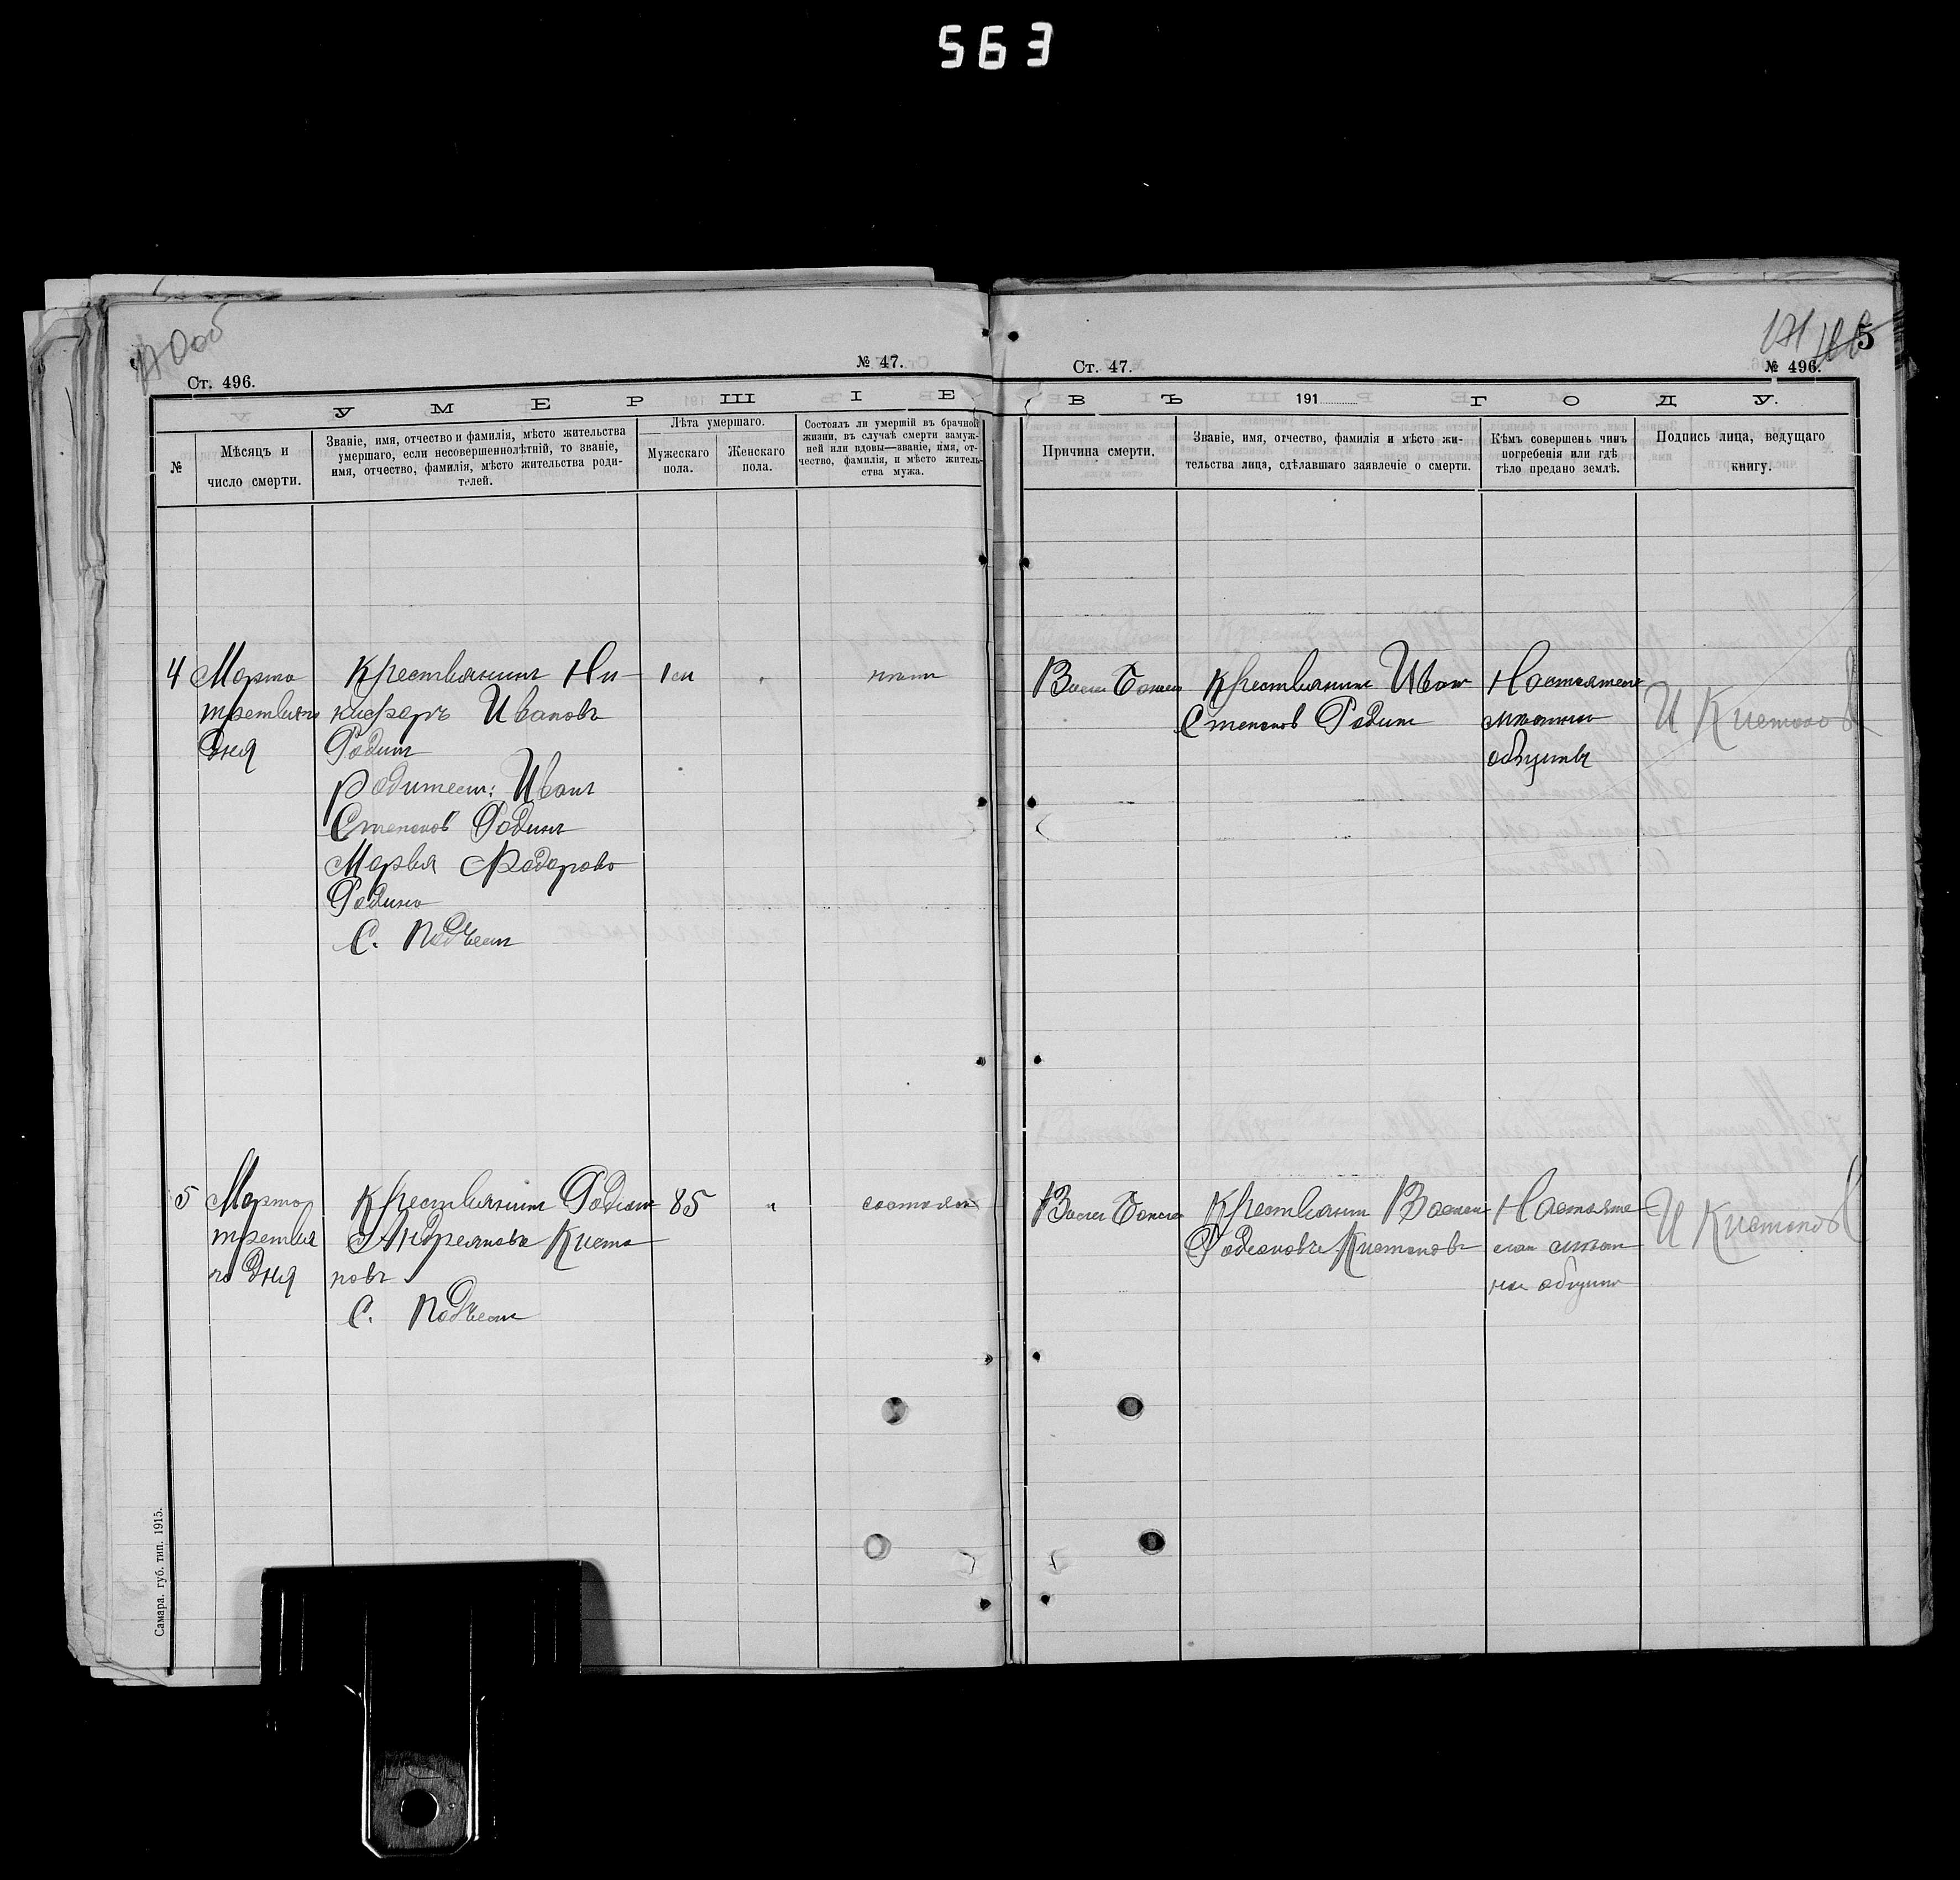 563
5
№ 47.
Ст. 496.
Ст. 47.
№ 496.
УМЕРШІЕ
ВЪ 191 ГОДУ.
№
Мѣсяцъ и
число смерти.
Званіе, имя, отчество и фамилія, мѣсто жительства
умершаго, если несовершеннолѣтній, то званіе,
имя, отчество, фамилія, мѣсто жительства роди-
телей.
Лѣта умершаго.
Мужескаго
пола.
Женскаго
пола.
Состоялъ ли умершій въ брачной
жизни, въ случаѣ смерти замуж-
ней или вдовы—званіе, имя, от-
чество, фамилія, и мѣсто житель-
ства мужа.
Причина смерти.
Званіе, имя, отчество, фамилія и мѣсто жи-
тельства лица, сдѣлавшаго заявленіе о смерти.
Кѣмъ совершенъ чинъ
погребенія или гдѣ
тѣло предано землѣ.
Подпись лица, ведущаго
книгу.
4
Марта
дня
Крестьянинъ Ни-
кифоръ Ивановъ
Родинъ
Родители: Иванъ
Степановъ Родинъ
Марья Федорова
Родина
С.
нѣтъ
Крестьянинъ Иванъ
Степановъ Родинъ
И Кистановъ
5
Марта
третья
го дня
Крестьянинъ Родіонъ
Андреяновъ Киста
новъ
С.
85
состоялъ
Крестьянинъ
Родіоновъ Кистановъ
Настояте
общины
И Кистановъ
Самара. губ. тип. 1915.